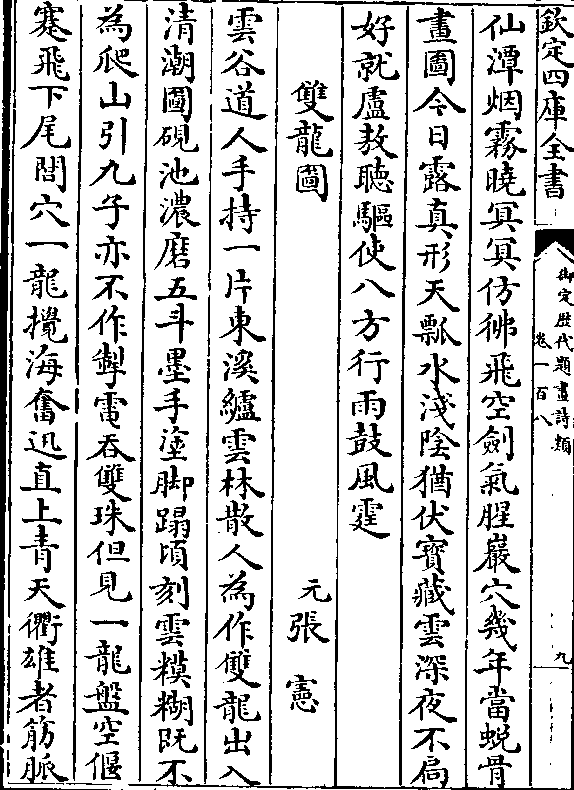 欽定四庫全書
御定歴代題畫詩類
卷一百八
九
仙潭烟霧曉冥冥仿彿飛空劍氣腥巖穴幾年當蛻骨
畫圖今日露真形天瓢水淺陰猶伏寳藏雲深夜不扃
好就盧敖聽驅使八方行雨鼓風霆
雙龍圖
元張憲
雲谷道人手持一片東溪鱸雲林散人為作雙龍出入
清潮圖硯池濃磨五斗墨手塗脚蹋頃刻雲糢糊既不
為爬山引九子亦不作掣電吞雙珠但見一龍盤空偃
蹇飛下尾閭穴一龍攪海奮迅直上青天衢雄者筋脈